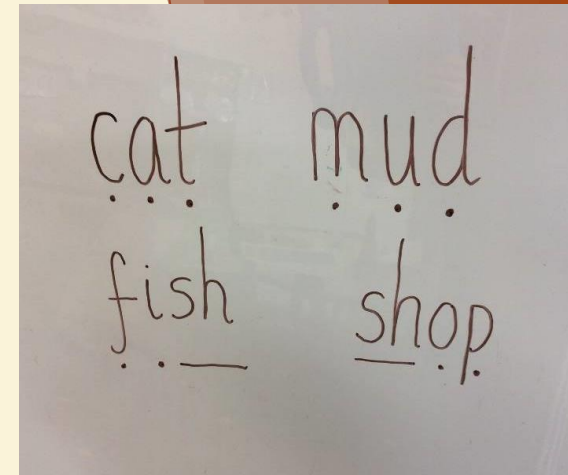 cat mud
fish shop